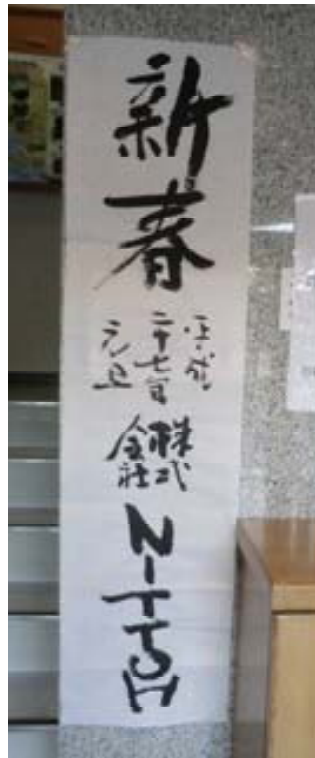 新春
平成
二十七年
元旦
株式
会社
NITTOH